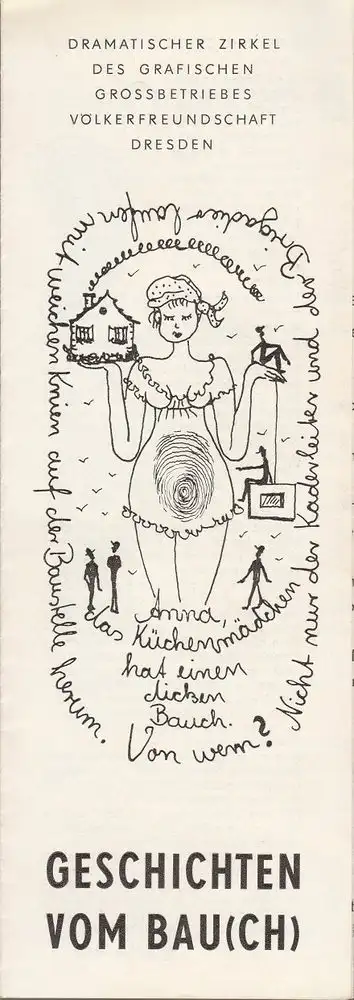 DRAMATISCHER ZIRKEL
DES GRAFISCHEN
GROSSBETRIEBES
VÖLKERFREUNDSCHAFT
DRESDEN
Anna,
das Küchenmädchen
hat einen
dicken
Bauch.
Von wem?
Nicht nur der Kaderleiter und der Brigadier laufen mit weichen Knien auf der Baustelle herum.
GESCHICHTEN
VOM BAU(CH)